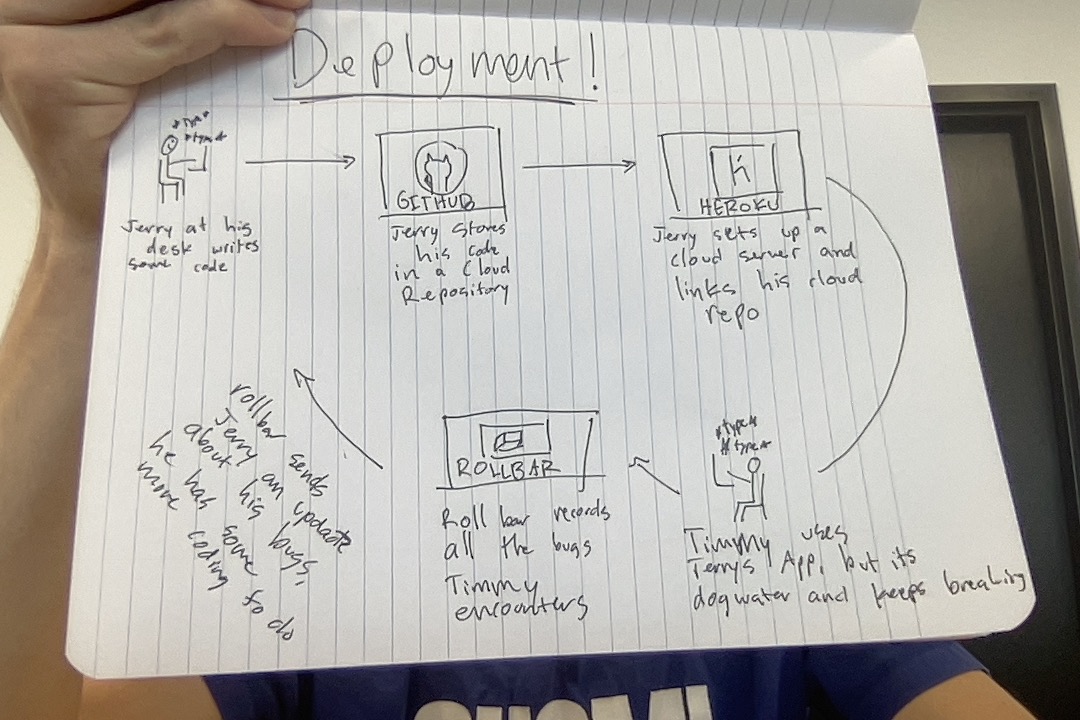 Deployment!
*type*
*type*
Jerry at his
desk writes
some code
GITHUB
Jerry stores
his code
in a Cloud
Repository
h
HEROKU
Jerry sets up a
cloud server and
links his cloud
repo
*type*
*type*
Timmy uses
Jerrys App, but its
dogwater and keeps breaking
ROLLBAR
Roll bar records
all the bugs
Timmy
encounters
rollbar sends
Jerry an update
about his bugs,
he has some
more coding to do